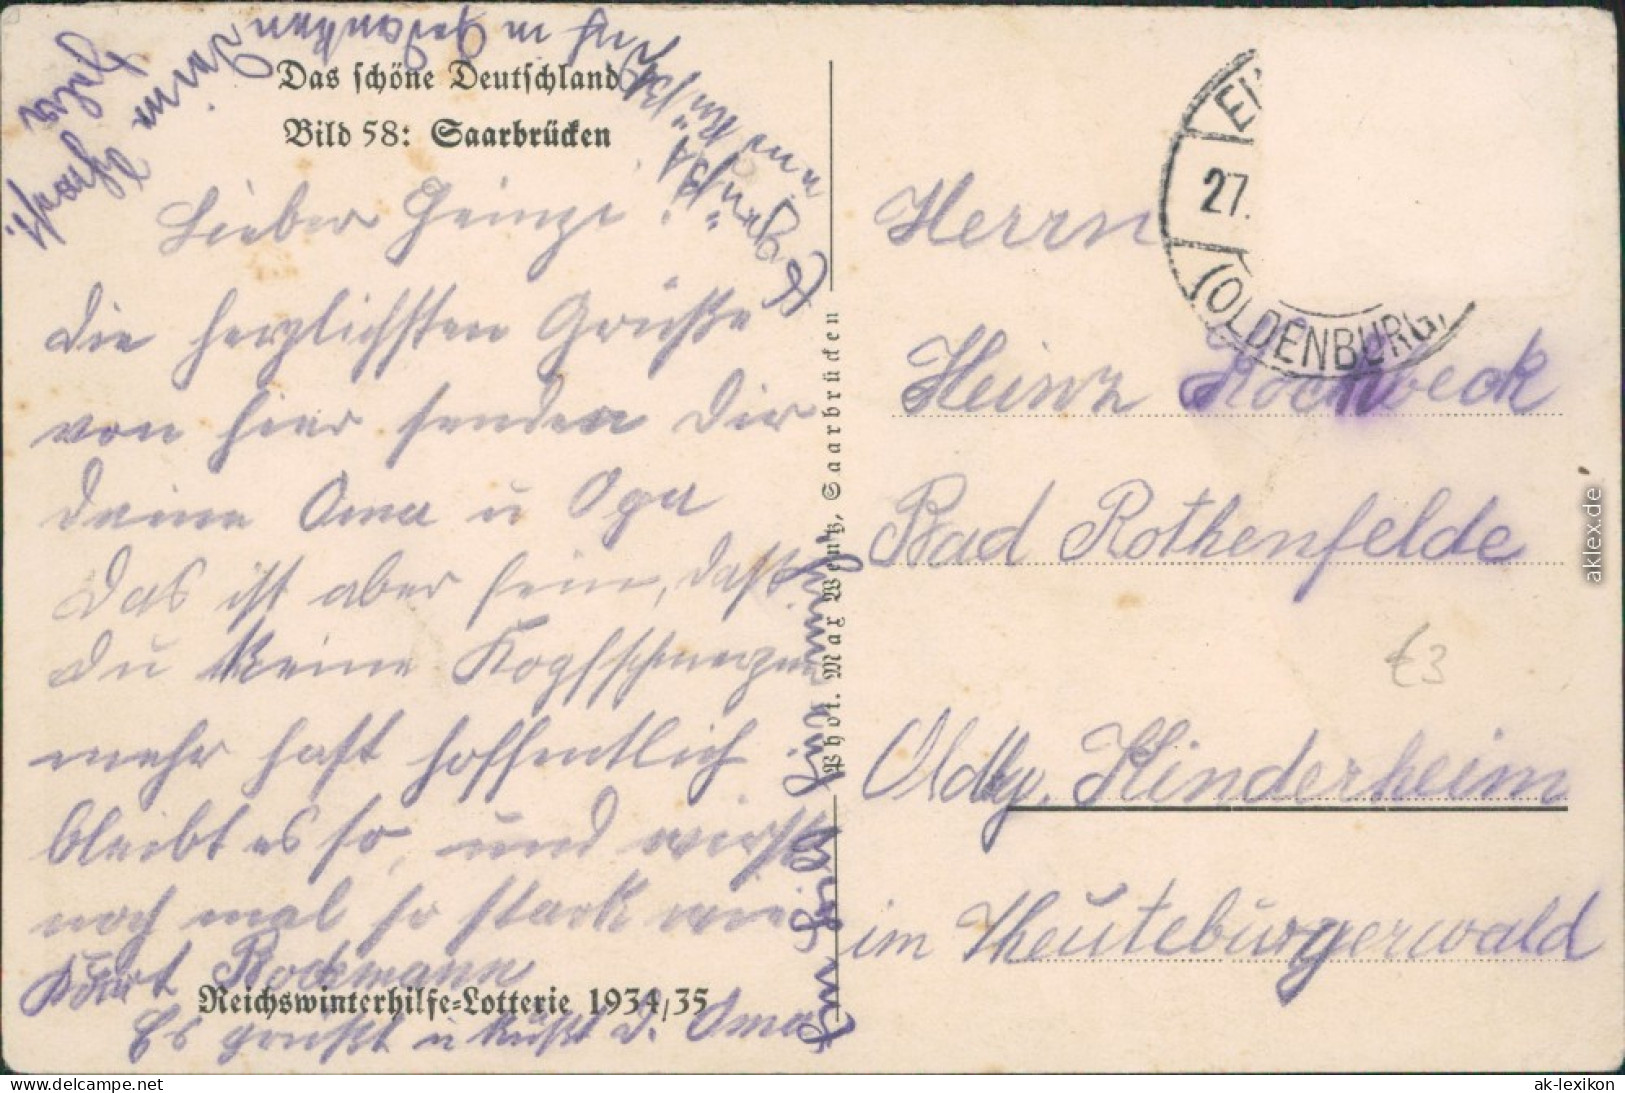 Das schöne Deutschland
Bild 58: Saarbrücken
Lieber Heinzi!
die herzlichsten Grüße
von hier senden Dir
Deine Oma u Opa
Das ist aber fein, daß
Du keine Kopfschmerzen
mehr hast hoffentlich
bleibt es so, und wirst
noch mal so stark wie
Kurt Bockmann
Es grüßt u küßt D. Oma
Reichswinterhilfe-Lotterie 1934/35
Es grüßt
und küßt
Dich in Gedanken
Deine
Phot. Max Wentz, Saarbrücken
27.
(OLDENBURG)
Herrn
Heinz
Bad Rothenfelde
Oldbg. Kinderheim
im Theuteburgerwald
€3
aklex.de
www.delcampe.net
ak-lexikon